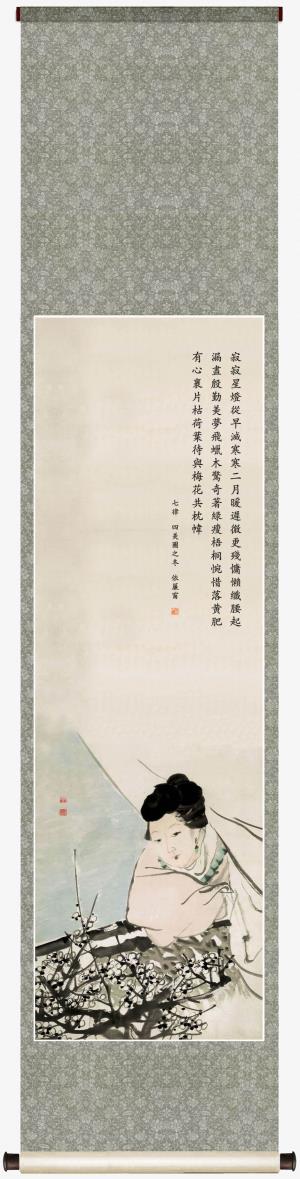 寂寂星燈從早滅寒寒二月暖遲微更殘慵懶纖腰起
漏盡殷勤美夢飛蠟木驚奇著綠瘦梧桐惋惜落黃肥
有心裹片枯荷葉待與梅花共枕幃
七律 四美圖之冬 依嚴甯